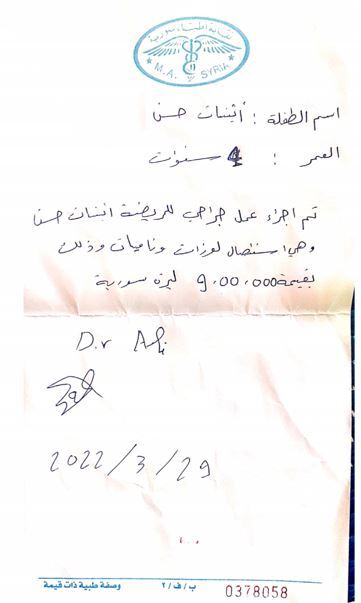 نقابة أطباء سورية
M.A. SYRIA
اسم الطفلة : أثبنات حسن
العمر : 4 سنوات
تم اجراء عمل جراحي للريضة اثبنات حسن
وهي استئصال لوزات وناميات وذلك
بقيمة 9.00.000 ليرة سورية
D.r Ali
2022/3/29
وصفة طبية ذات قيمة
ب/ف/٢
0378058